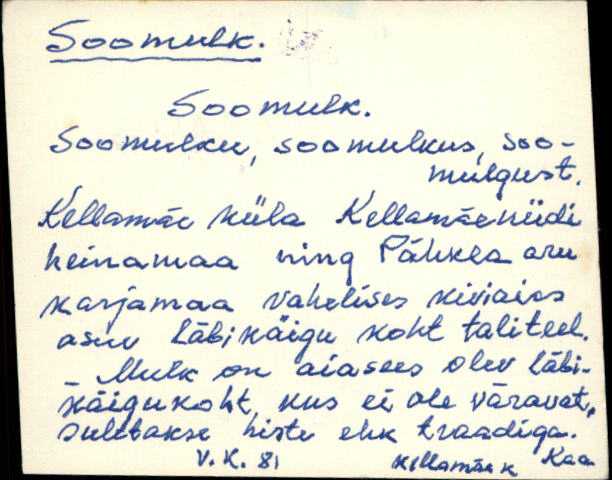 Soomulk.
Soomulk.
Soomulku, soomulkus, soo-
mulgust.
Kellamäe küla Kellamäeniidi
heinamaa ning Pähkla aru
karjamaa vahelises kiviaias
asuv läbikäigu koht taliteel.
- Mulk on aiasees olev läbi-
käigukoht, kus ei ole väravat,
suletakse histe ehk traadiga.
V. K. 81 Kellamäe k Kaa